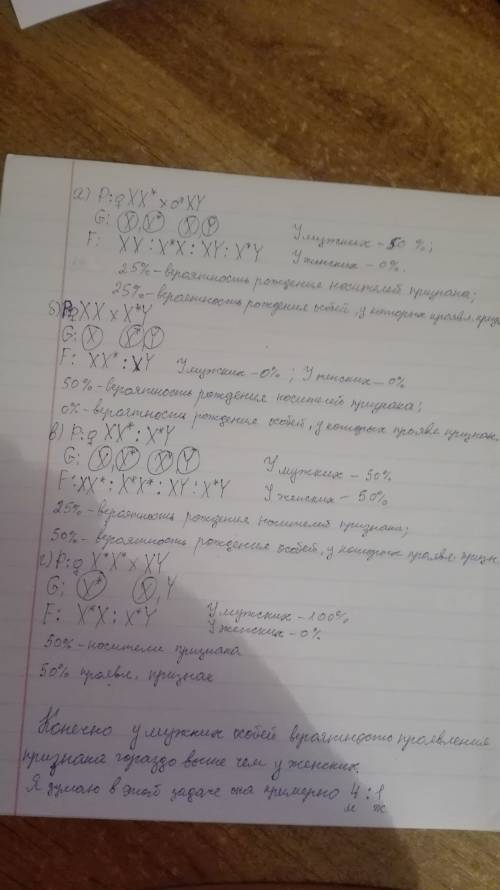 а) P: ♀ XX* × ♂ XY
G: X, X* X, Y
F: XX : X*X : XY : X*Y
У мужских - 50 %;
У женских - 0%.
25% - вероятность рождения носителей признака;
25% - вероятность рождения особей, у которых проявл. призн
б) P: ♀ XX × X*Y
G: X X*, Y
F: XX* : XY У мужских - 0% ; У женских - 0%
50% - вероятность рождения носителей признака;
0% - вероятность рождения особей, у которых проявл. признак.
в) P: ♀ XX* : X*Y
G: X, X* X*, Y
F: XX* : X*X* : XY : X*Y
У мужских - 50%
У женских - 50%
25% - вероятность рождения носителей признака;
50% - вероятность рождения особей, у которых проявл. призн.
г) P: ♀ X*X* × XY
G: X* X, Y
F: X*X : X*Y
У мужских - 100%
У женских - 0%
50% - носители признака
50% проявл. признак
Конечно у мужских особей вероятность проявления
признака гораздо выше чем у женских.
Я думаю в этой задаче эта примерно 4 : 1
м ж